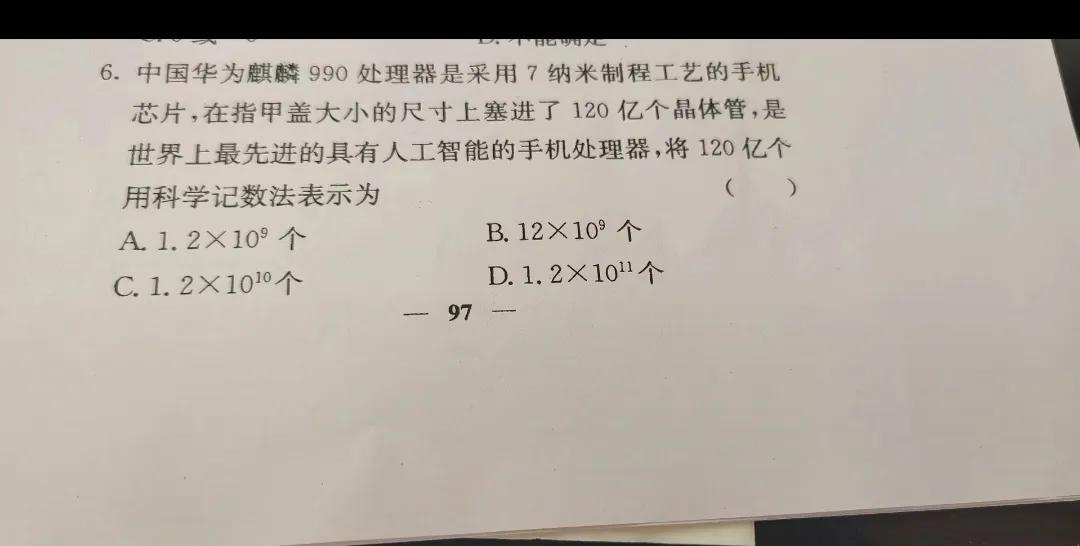 6. 中国华为麒麟 990 处理器是采用 7 纳米制程工艺的手机
芯片,在指甲盖大小的尺寸上塞进了 120 亿个晶体管,是
世界上最先进的具有人工智能的手机处理器,将 120 亿个
用科学记数法表示为 (  )
A. 1. 2×10⁹ 个 B. 12×10⁹ 个
C. 1. 2×10¹⁰ 个 D. 1. 2×10¹¹ 个
— 97 —